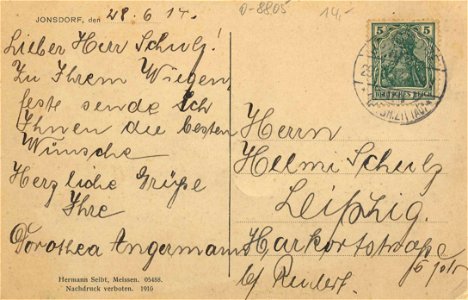 JONSDORF, den 28.6.14.
D-8805
14,-
Lieber Herr Schulz!
Zu Ihrem Wiegen
feste sende ich
Ihnen die besten
Wünsche
Herzliche Grüße
Ihre
Dorothea Angermann
Hermann Seibt, Meissen. 05488.
Nachdruck verboten. 1910
5 5
DEUTSCHES REICH
Herrn
Helmi Schulz
Leipzig.
Harkortstraße
b/ Rendert.